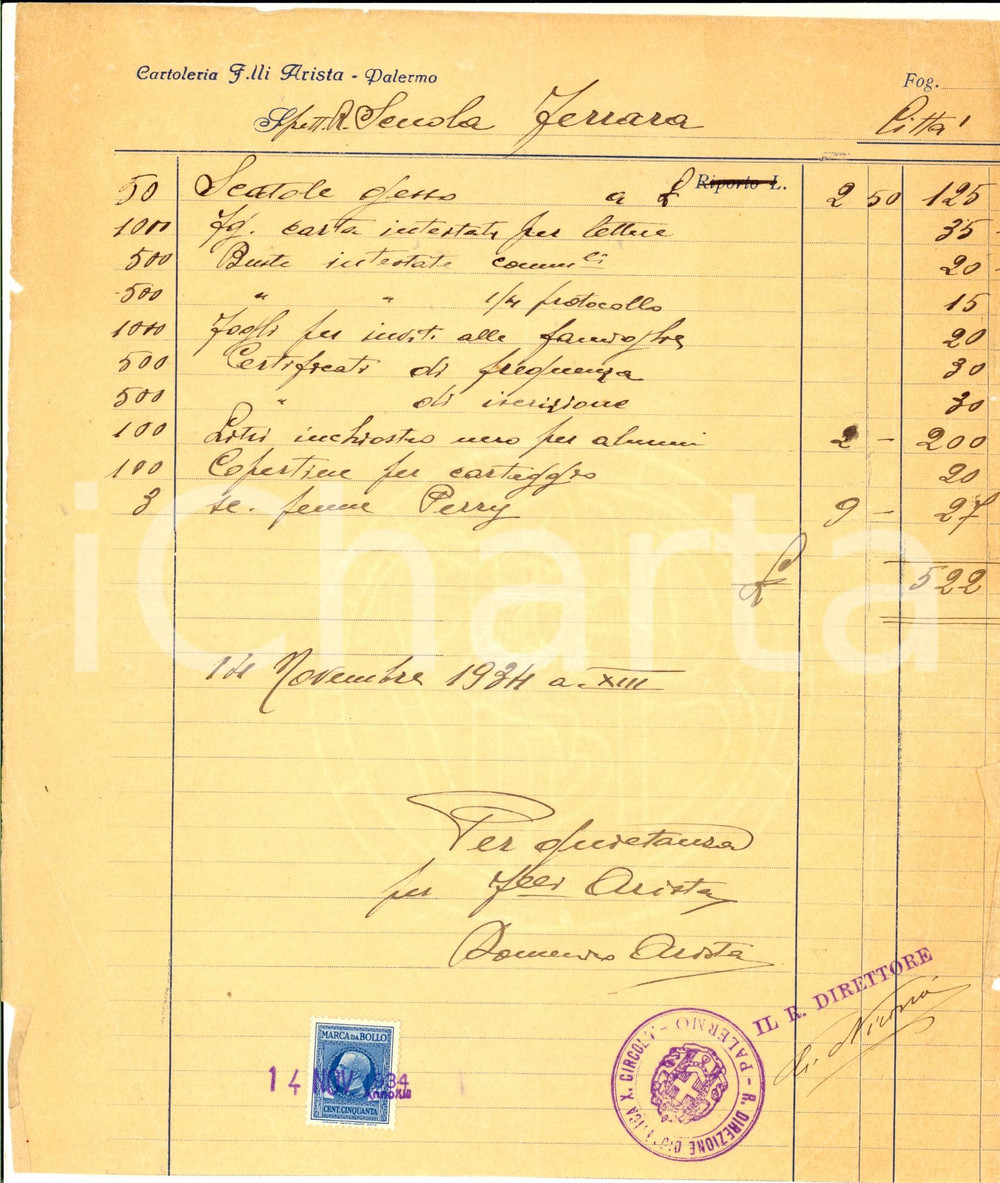 Cartoleria F.lli Arista - Palermo
Fog.
Spett. R. Scuola Ferrara
Città
Riporto L.
50 Scatole gesso a £ 2 50 125
1000 Fg. carta intestata per lettere 35 -
500 Buste intestate comm.li 20 -
500 " " 1/4 protocollo 15
1000 Fogli per inviti alle famiglie 20
500 Certificati di frequenza 30
500 " di iscrizione 30
100 Litri inchiostro nero per alunni 2 - 200
100 Copertine per carteggio 20
3 sc. penne Perry 9 - 27
£ 522
iCharta
14 Novembre 1934 a. XIII
Per quietanza
per F.lli Arista
Domenico Arista
IL R. DIRETTORE
MARCA DA BOLLO
14 NOV. 1934
Anno XIII
CENT. CINQUANTA
PALERMO - R. DIREZIONE X. CIRCOLO